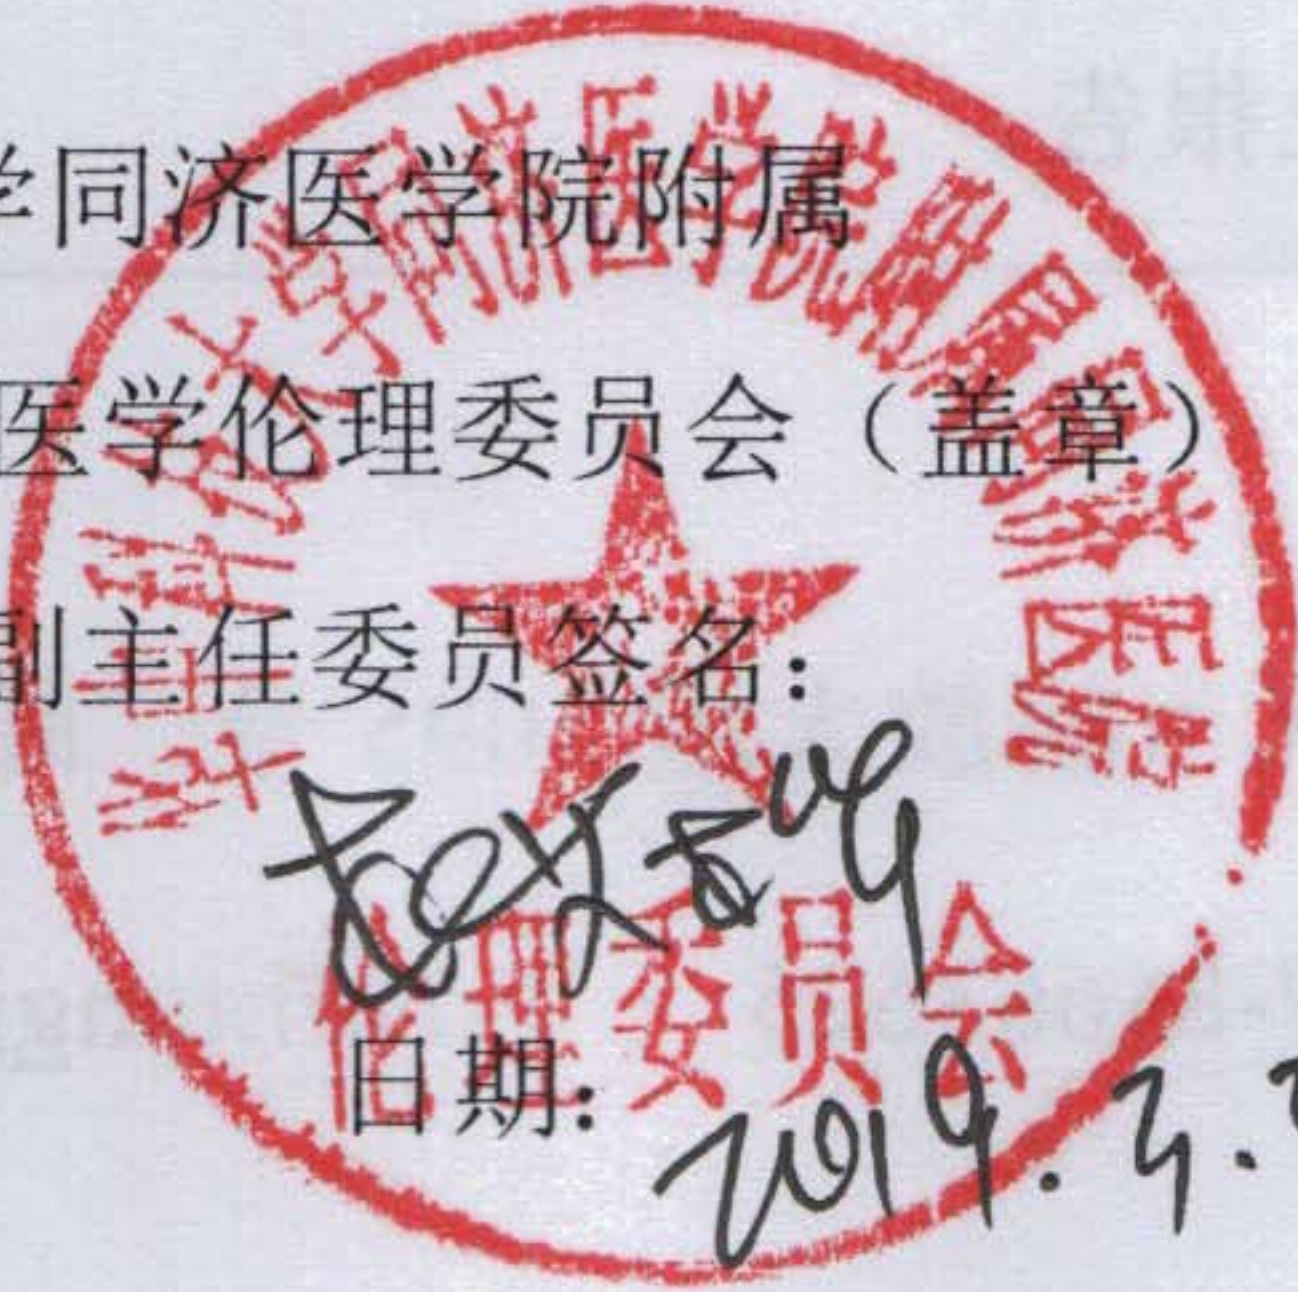 学同济医学院附属
医学伦理委员会（盖章）
副主任委员签名：
日期：2019.3.
华中科技大学同济医学院附属同济医院
伦理委员会